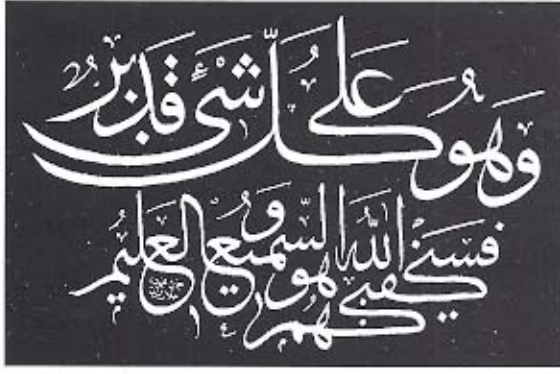 وَهُوَ عَلٰى كُلِّ شَىْءٍ قَدِيْرٌ
فَسَيَكْفِيْكَهُمُ اللّٰهُ وَهُوَ السَّمِيْعُ الْعَلِيْمُ